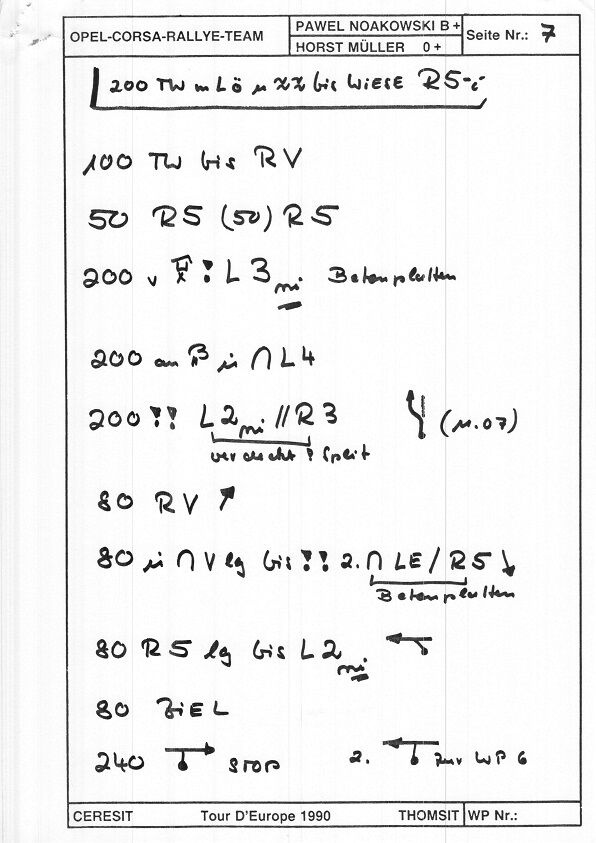 OPEL-CORSA-RALLYE-TEAM
PAWEL NOAKOWSKI B +
HORST MÜLLER 0 +
Seite Nr.: 7
200 TW in L ö bis WiESE R5
100 TW bis RV
50 R5 (50) R5
200 v ! L3 mi Betonplatten
200 an in ∩ L4
200 !! L2 mi // R3 (11.07)
verdeckt ! Split
80 RV ↗
80 in ∩ V lg bis !! 2. ∩ LE / R5 ↘
Betonplatten
80 R5 lg bis L2 mi ←
80 ZiEL
240 → STOP 2. ← zur WP 6
CERESIT Tour D'Europe 1990 THOMSIT WP Nr.: